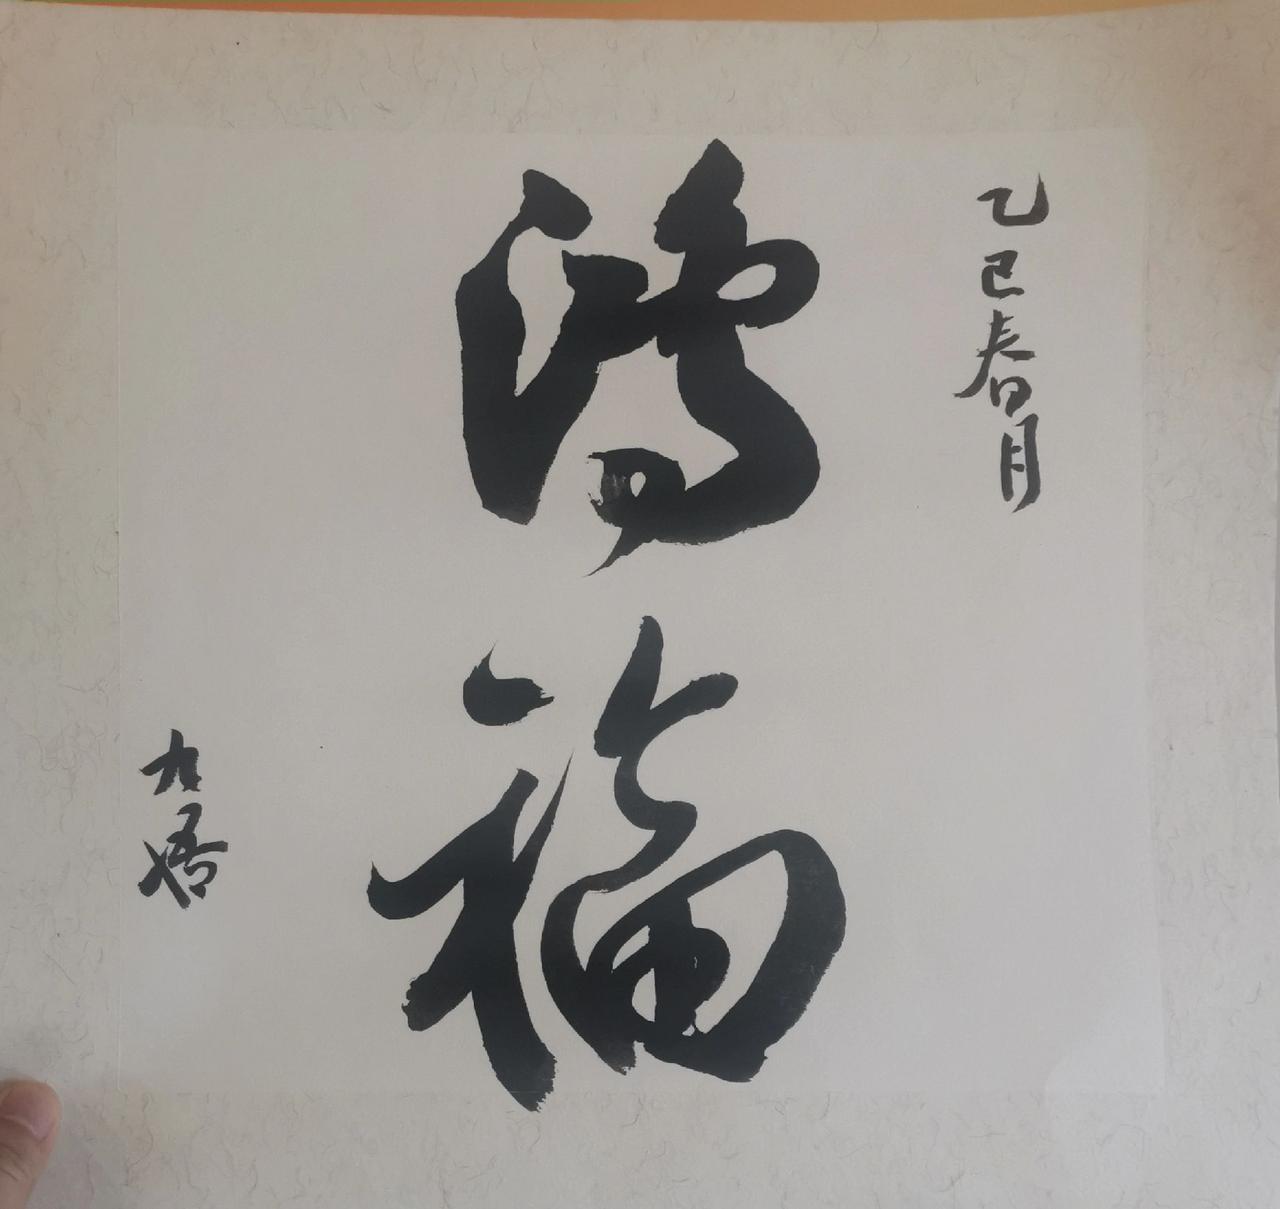 乙巳春月
鸿福
九悟